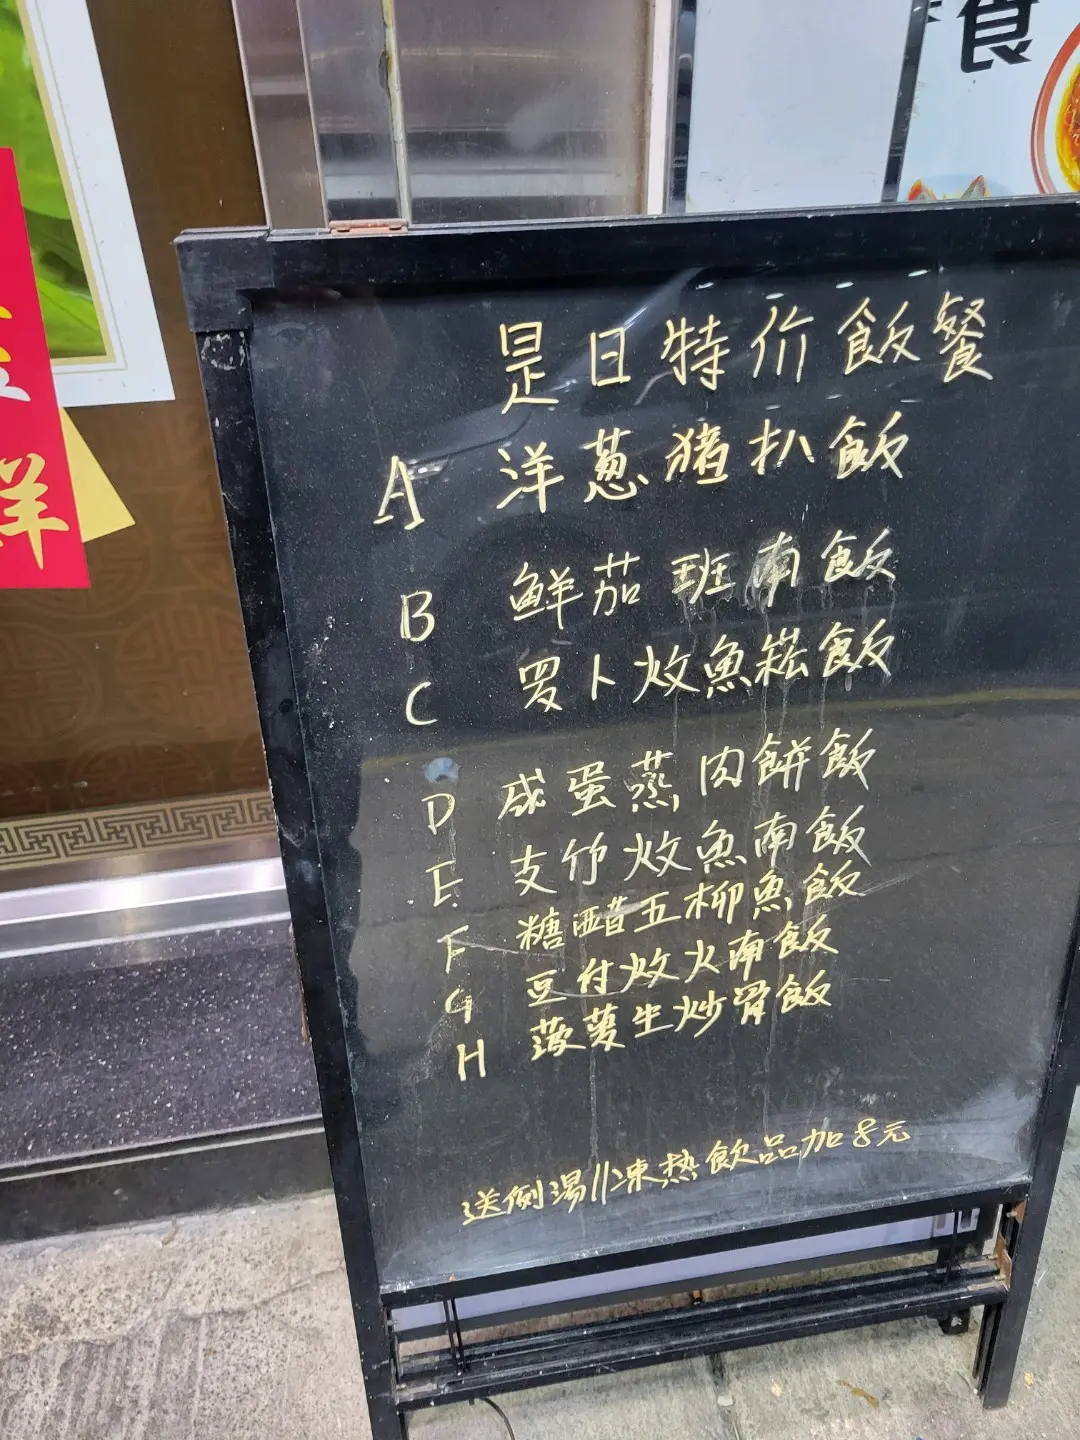 食
鮮
是日特价飯餐
A 洋葱猪扒飯
B 鮮茄班南飯
C 罗卜炆魚崧飯
D 咸蛋蒸肉餅飯
E 支竹炆魚南飯
F 糖醋五柳魚飯
G 豆付炆火南飯
H 菠萝生炒骨飯
送例湯//凍热飲品加8元